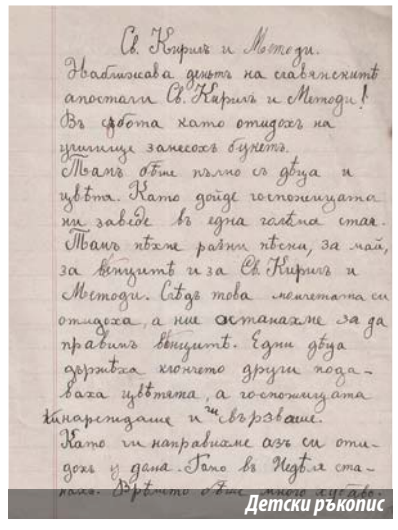 Св. Кирилъ и Методи.
Наближава деньтъ на славянскитѣ
апостали Св. Кирилъ и Методи!
Въ сѫбота като отидохъ на
училище занесохъ букетъ.
Тамъ бѣше пълно съ дѣца и
цвѣтя. Като дойде госпожицата
ни заведе въ една голѣма стая.
Тамъ пѣхме разни пѣсни, за май,
за вѣнцитѣ и за Св. Кирилъ и
Методи. Слѣдъ това момчетата си
отидоха, а ние останахме за да
правимъ вѣнцитѣ. Едни дѣца
държеха клончето други пода-
ваха цвѣтята, а госпожицата
нареждаше и ги свързваше.
Като ги направихме азъ си оти-
дохъ у дома. Гато въ Недѣля ста-
нахъ. Врѣмето бѣше много хубаво.
Детски ръкопис